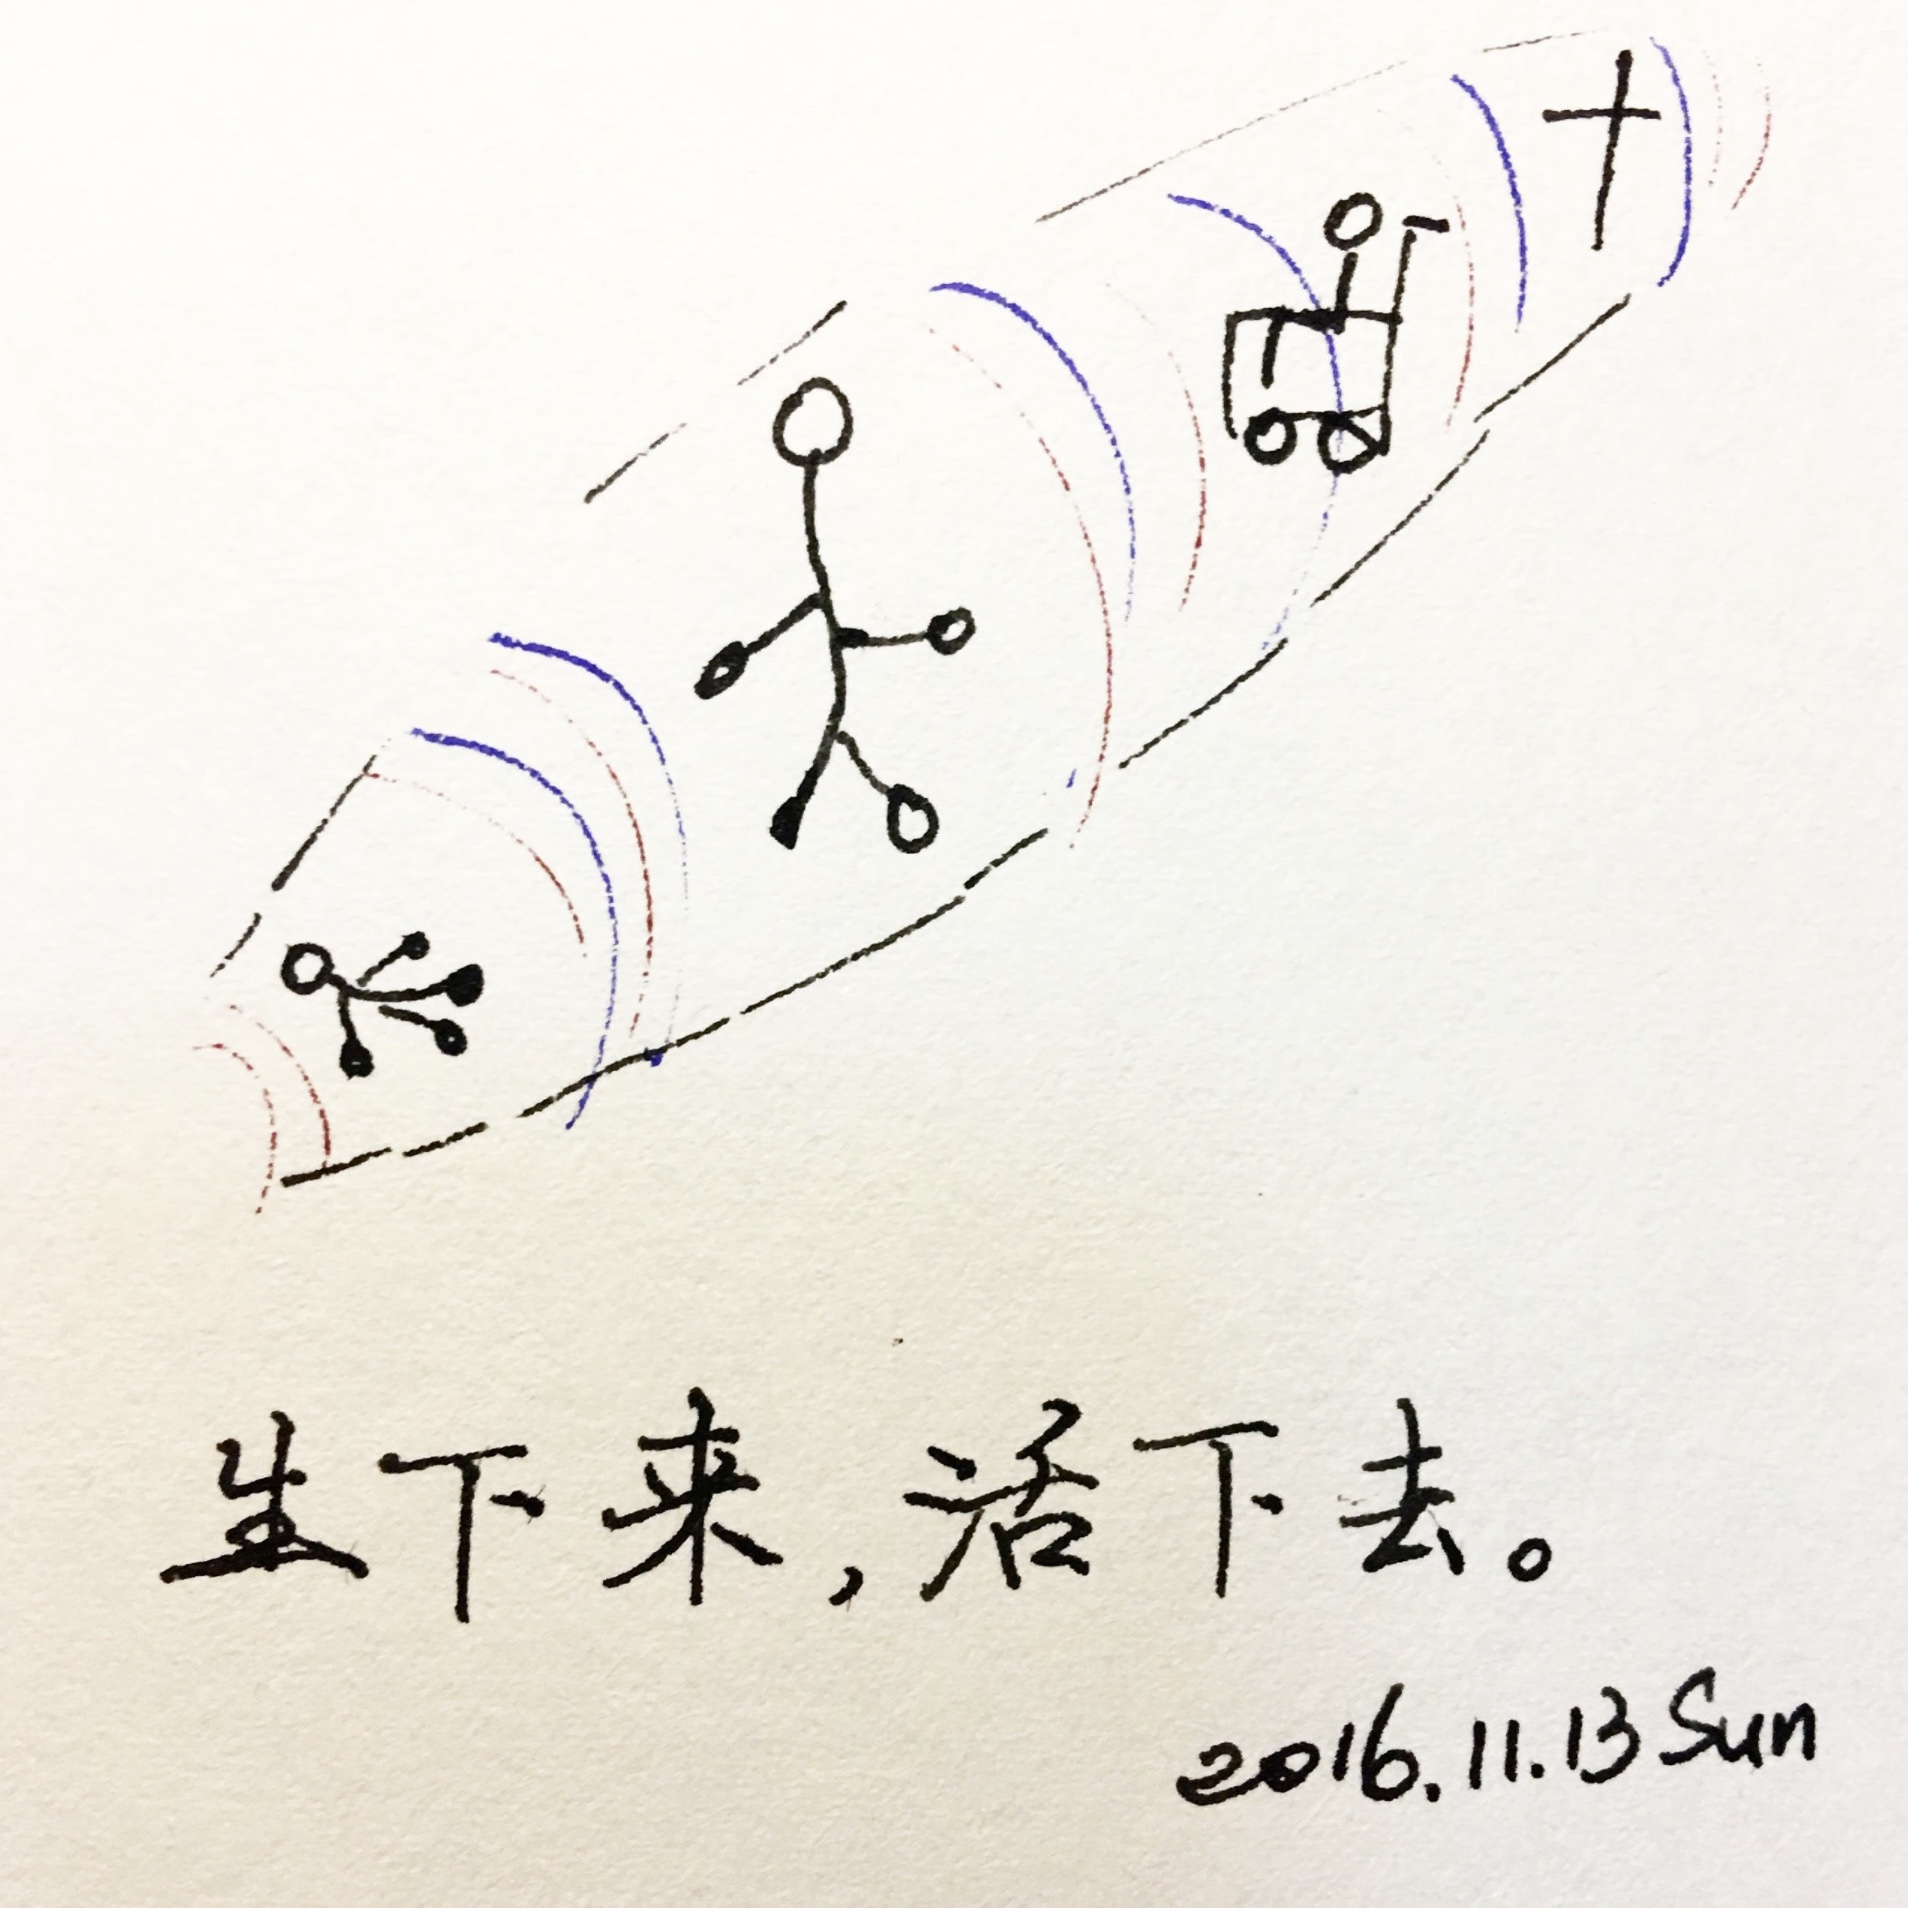 生下来,活下去。
2016.11.13 Sun